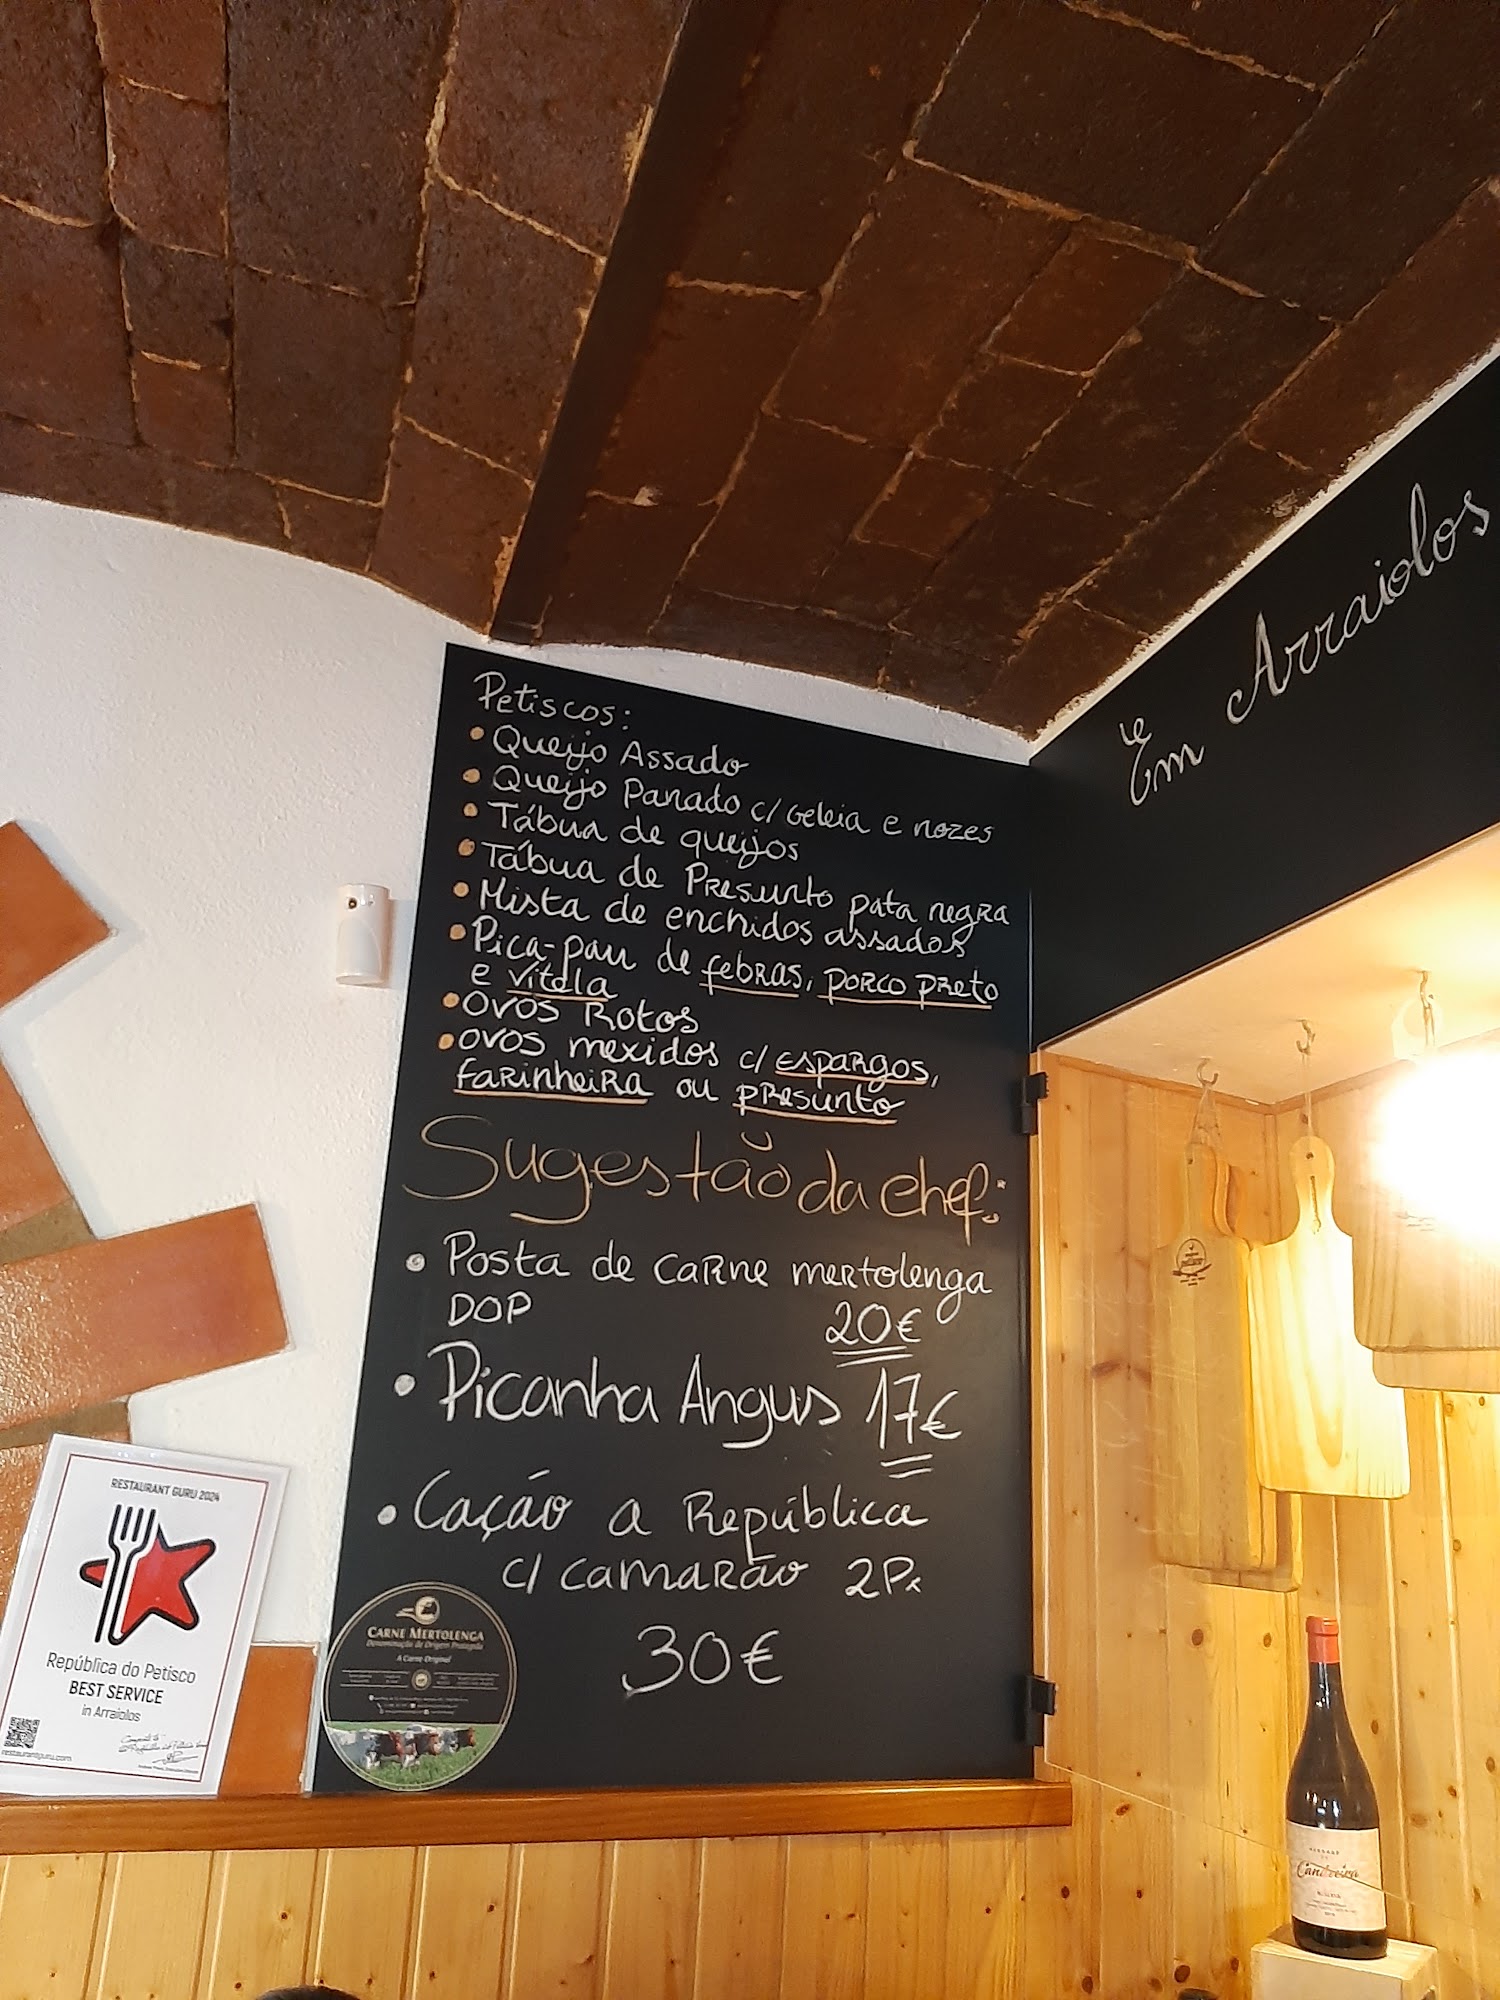 Petiscos:
• Queijo Assado
• Queijo Panado c/ Geleia e nozes
• Tábua de queijos
• Tábua de Presunto pata negra
• Mista de enchidos assados
• Pica-pau de febras, porco preto
e vitela
• Ovos Rotos
• ovos mexidos c/ espargos,
farinheira ou presunto
Sugestão da chef:
• Posta de carne mertolenga
DOP 20€
• Picanha Angus 17€
• Cação a República
c/ camarão 2Px
30€
Em Arraiolos
RESTAURANT GURU 2024
República do Petisco
BEST SERVICE
in Arraiolos
restaurantguru.com
CARNE MERTOLENGA
Denominação de Origem Protegida
A Carne Original